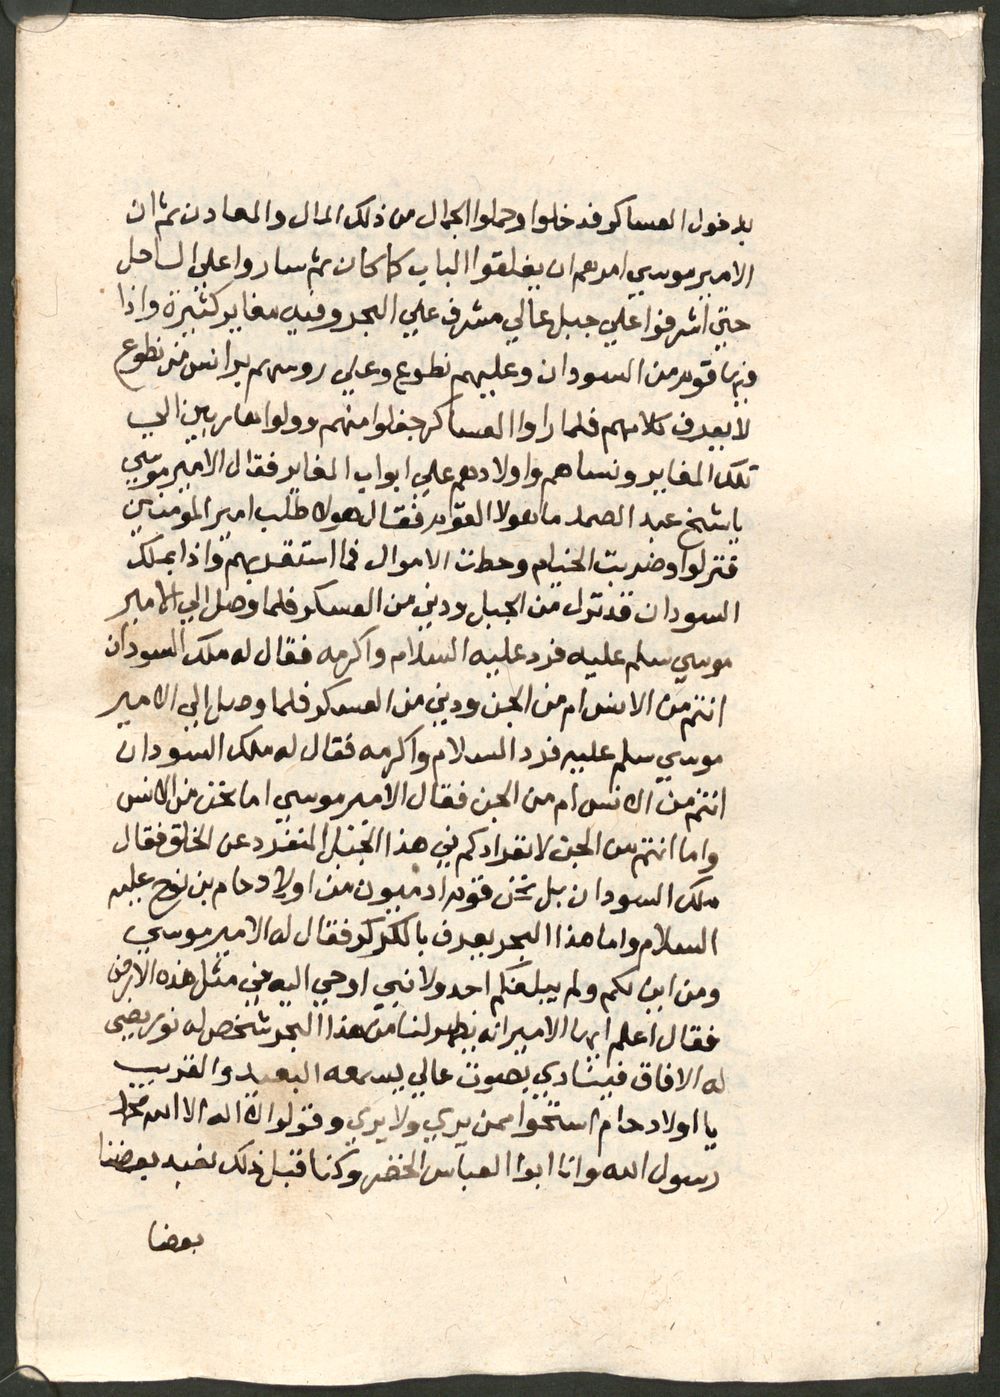 بدخول العساكر فدخلوا وحملوا الجمال من ذلك المال والمعادن ثم ان
الامير موسي امرهم ان يغلقوا الباب كما كان ثم ساروا علي الساحل
حتي اشرفوا علي جبل عالي مشرف علي البحر وفيه مغاير كثيرة واذا
فيها قوم من السودان وعليهم نطوع وعلي روسهم برانس من نطوع
لا يعرف كلامهم فلما راوا العساكر جفلوا منهم وولوا هاربين الي
تلك المغاير ونساهم واولادهم علي ابواب المغاير فقال الامير موسي
يا شيخ عبد الصمد ما هولا القوم فقال هولا طلب امير المومنين
فنزلوا وضربت الخيام وحطت الاموال فما استقر بهم واذا بملك
السودان قد نزل من الجبل ودني من العسكر فلما وصل الي الامير
موسي سلم عليه فرد عليه السلام واكرمه فقال له ملك السودان
انتم من الانس ام من الجن ودني من العسكر فلما وصل الي الامير
موسي سلم عليه فرد السلام واكرمه فقال له ملك السودان
انتم من الانس ام من الجن فقال الامير موسي اما نحن من الانس
واما انتم من الجن لانفرادكم في هذا الجبل المنفرد عن الخلق فقال
ملك السودان بل نحن قوم ادميون من اولاد حام بن نوح عليه
السلام واما هذا البحر يعرف بالكركر فقال له الامير موسي
ومن اين لكم ولم يبلغكم احد ولا نبي اوحي اليه في مثل هذه الارض
فقال اعلم ايها الامير انه يظهر لنا من هذا البحر شخص له نور يضي
له الافاق فينادي بصوت عالي يسمعه البعيد والقريب
يا اولاد حام استحوا ممن يري ولا يري وقولوا لا اله الا الله محمد
رسول الله وانا ابوا العباس الخضر وكنا قبل ذلك نعبد بعضنا
بعضا